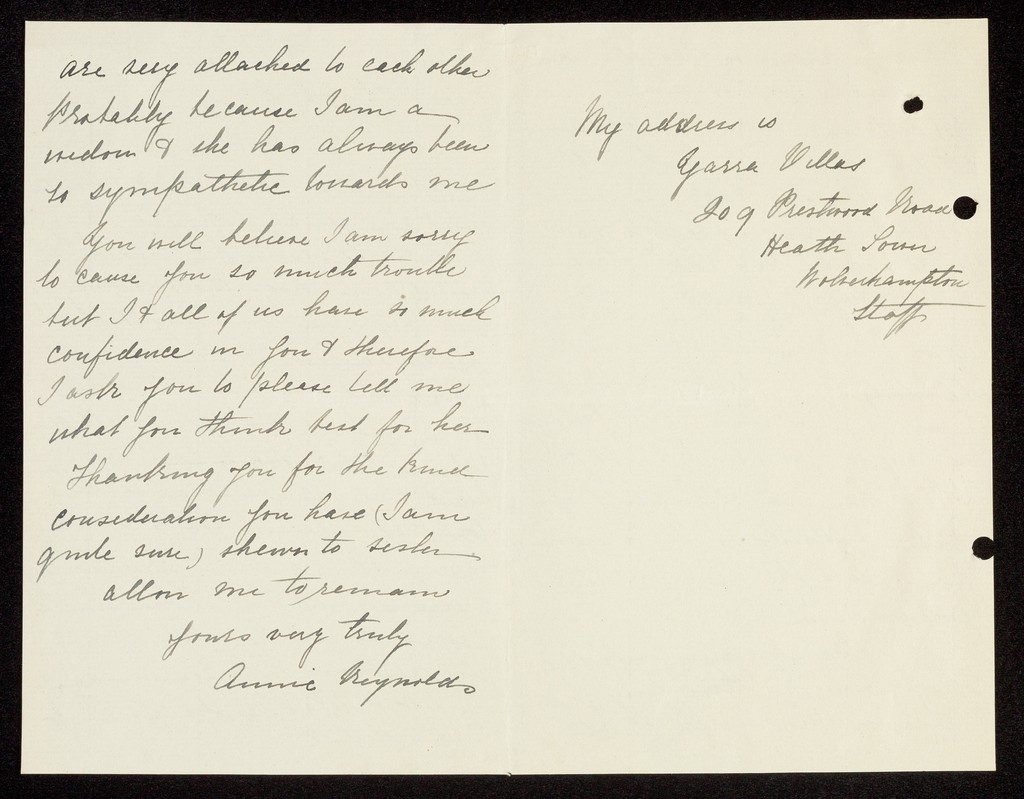 are very attached to each other
Probably because I am a
widow & she has always been
so sympathetic towards me
You will believe I am sorry
to cause you so much trouble
but I & all of us have so much
confidence in you & therefore
I ask you to please tell me
what you think best for her
Thanking you for the kind
consideration you have (I am
quite sure) shewn to sister
allow me to remain
yours very truly
Annie Reynolds
My address is
Yarra Villas
209 Prestwood Road
Heath Town
Wolverhampton
Staffs